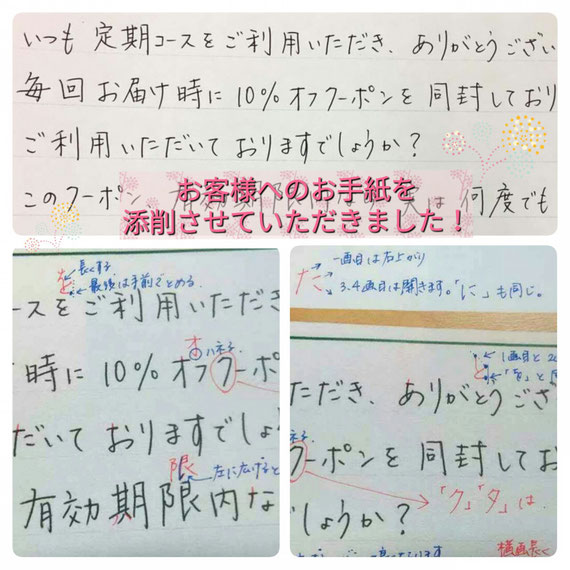 いつも 定期コースをご利用いただき、ありがとうござい
毎回 お届け時に 10% オフクーポンを 同封しており
ご利用いただいて おりますでしょうか?
このクーポン、有効期
何度でも
お客様へのお手紙を
添削させていただきました!
を
長くする
最後は手前でとめる
ースをご利用いただき
オ ハネる
時に 10% オフクーポ
だいて おりますでしょ
限
左に広げると
有効期限内な
た
一画目は右上がり
3.4画目は開きます。「に」も同じ。
1画目と
と
「を」と
ただき、ありがとうござ
クーポンを 同封してお
「ク」「タ」は
しょうか?
横画長く